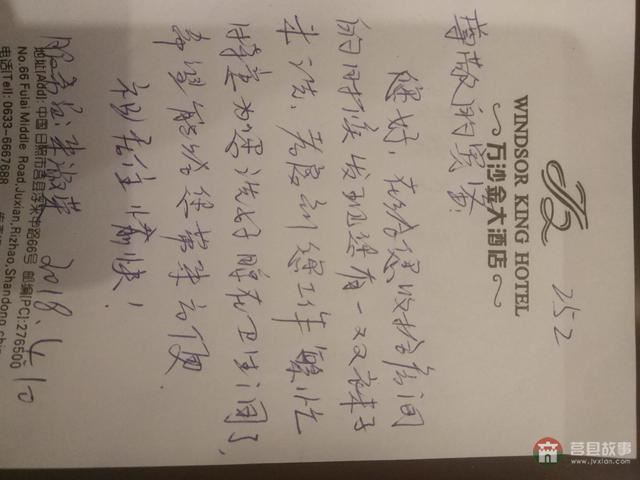 252
WINDSOR KING HOTEL
万沙金大酒店
尊敬的宾客：
您好，在给您收拾房间
的时候发现您有一双袜子
未洗，考虑到您工作繁忙
特意为您洗好晾在卫生间了，
希望能给您带来方便
祝居住愉快！
服务员：
2018.4.10
地址(Add): 中国日照市莒县浮来中路66号 邮编(PC):276500
No.66 Fulai Middle Road,Juxian,Rizhao,Shandong,chin
电话(Tel): 0633-6667688
莒县故事
www.jvxian.com